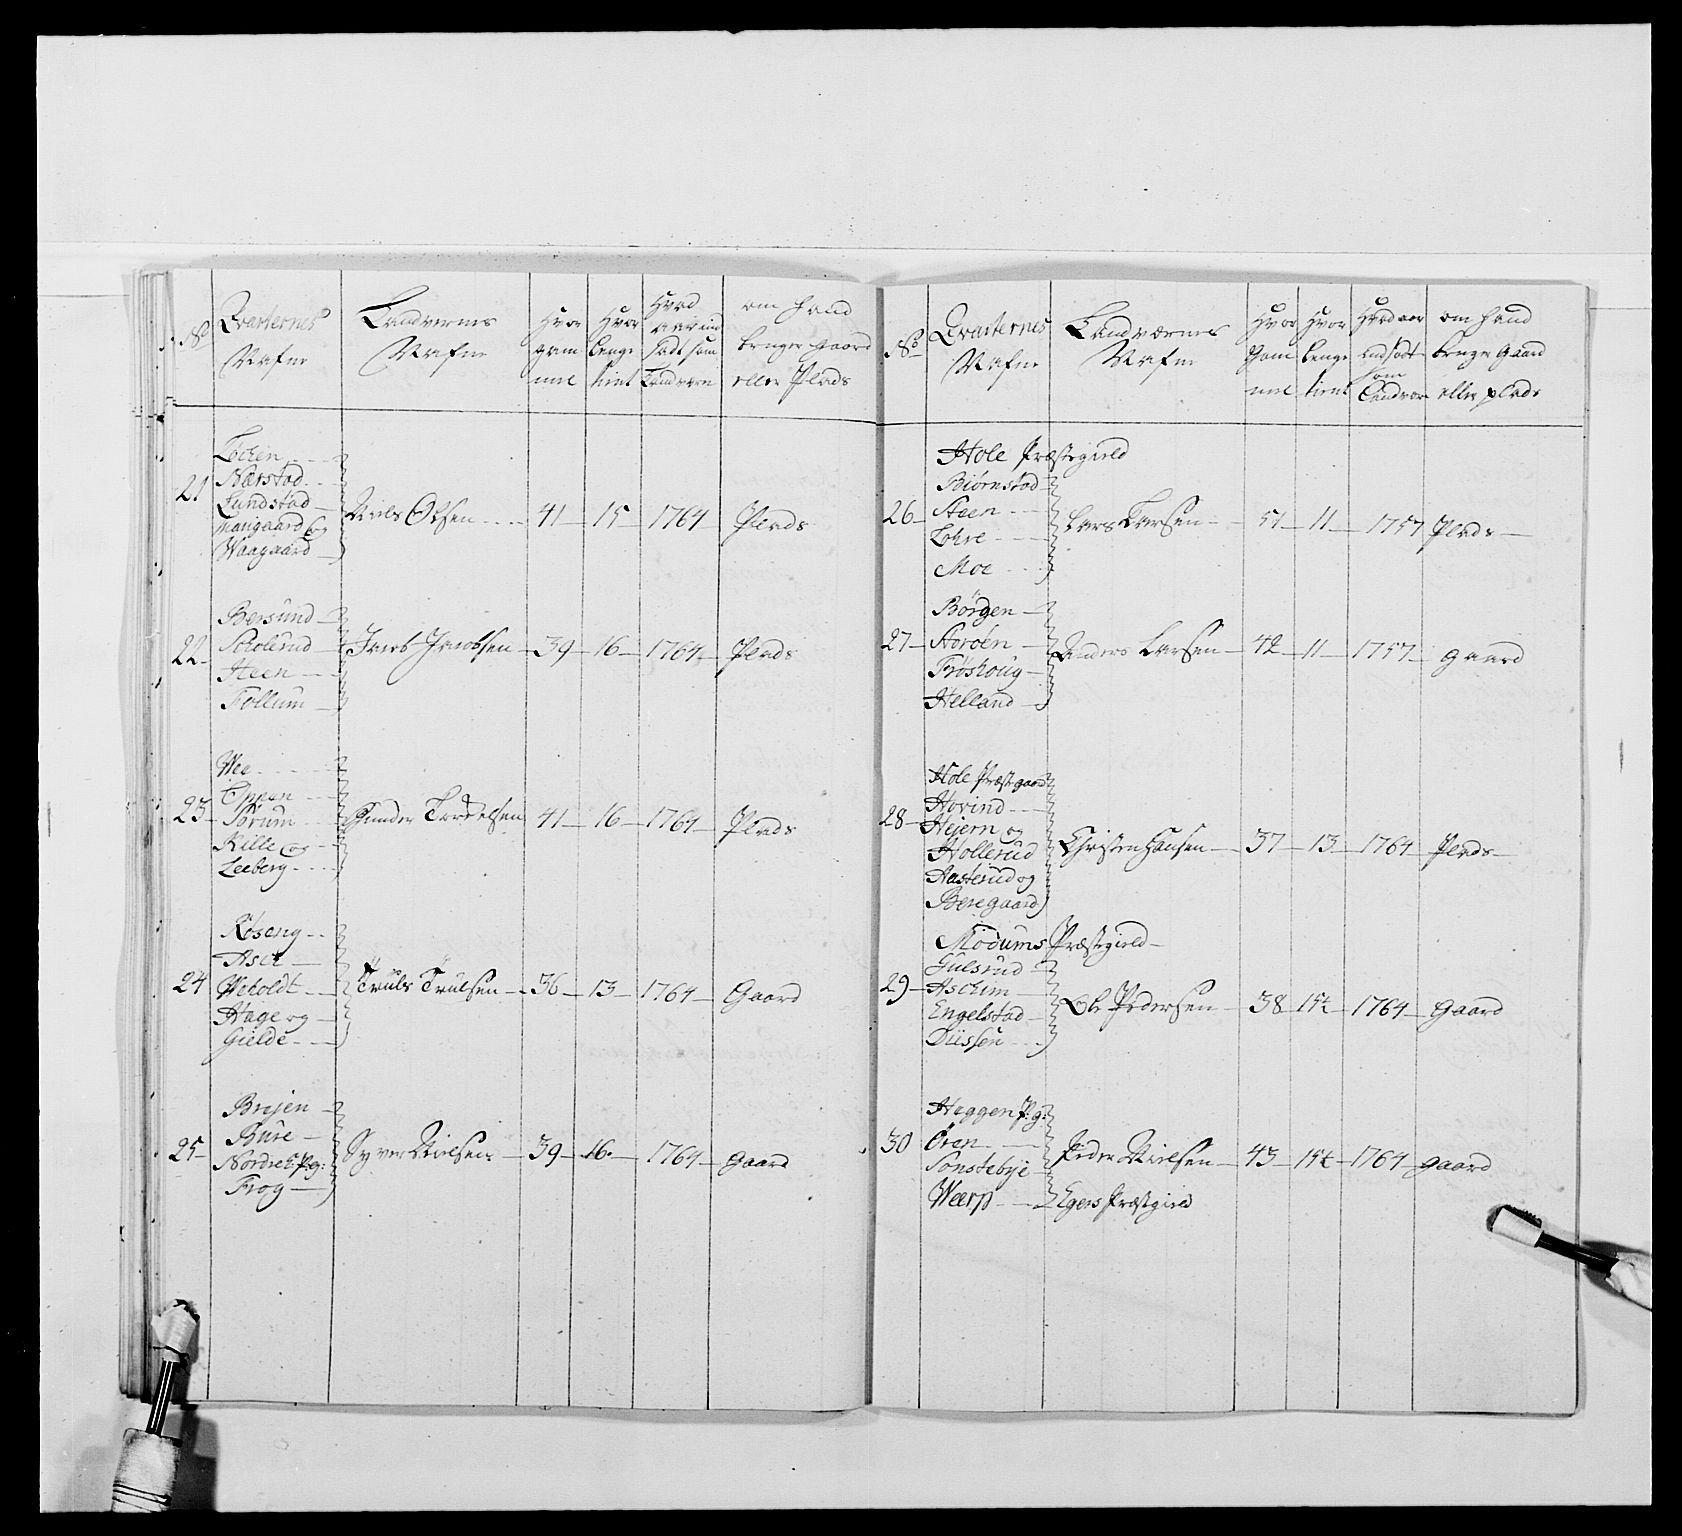 No
Qvarternes
Nafne
Landvernes
Nafne
Hvor
gam
mel
Hvor
lenge
tient
Hvad
aar ind
sadt som
Landværn
om hand
bruger gaard
eller Plads
21
Løchen
Nærstad
Lundstad
Mougaard og
Waagaard
Niels Olsen 41 15 1764 Plads
22
Bersund
Schølerud
Heen
Follum
Jacob Jacobsen 39 16 1764 Plads
23
Wee
Oppen
Sørum
Kille og
Leeberg
Gunder Tordelsen 41 16 1764 Plads
24
Røseng
Ask
Weholdt
Hage og
Gielde
Truls Trulsen 36 13 1764 Gaard
25
Brejen
Bure
Nordre P:g:
Frog
Syver Nielsen 39 16 1764 gaard
No
Qvarternes
Nafne
Landværnes
Nafne
Hvor
Gam
mel
Hvor
lenge
tient
Hvad aar
indsadt
som
Landvær
om hand
bruger Gaard
eller plads
Hole Præstegield
26
Biørnstad
Steen
Løhre
Moe
Lars Larsen 51 11 1757 Plads
27
Børgen
Storøen
Frøshoug
Helland
Anders Larsen 42 11 1757 gaard
28
Hole Præstgaard
Hovind
Hejern og
Hollerud
Aasterud og
Beregaard
Christen Hansen 37 13 1764 Plads
Modums Præstegield
29
Gulsrud
Aschim
Engelstad
Diisen
Ole Pedersen 38 15½ 1764 Gaard
30
Heggen P:g:
Øren
Sonstebye
Weerp
Peder Nielsen 43 15½ 1764 gaard
Egers Præstegield